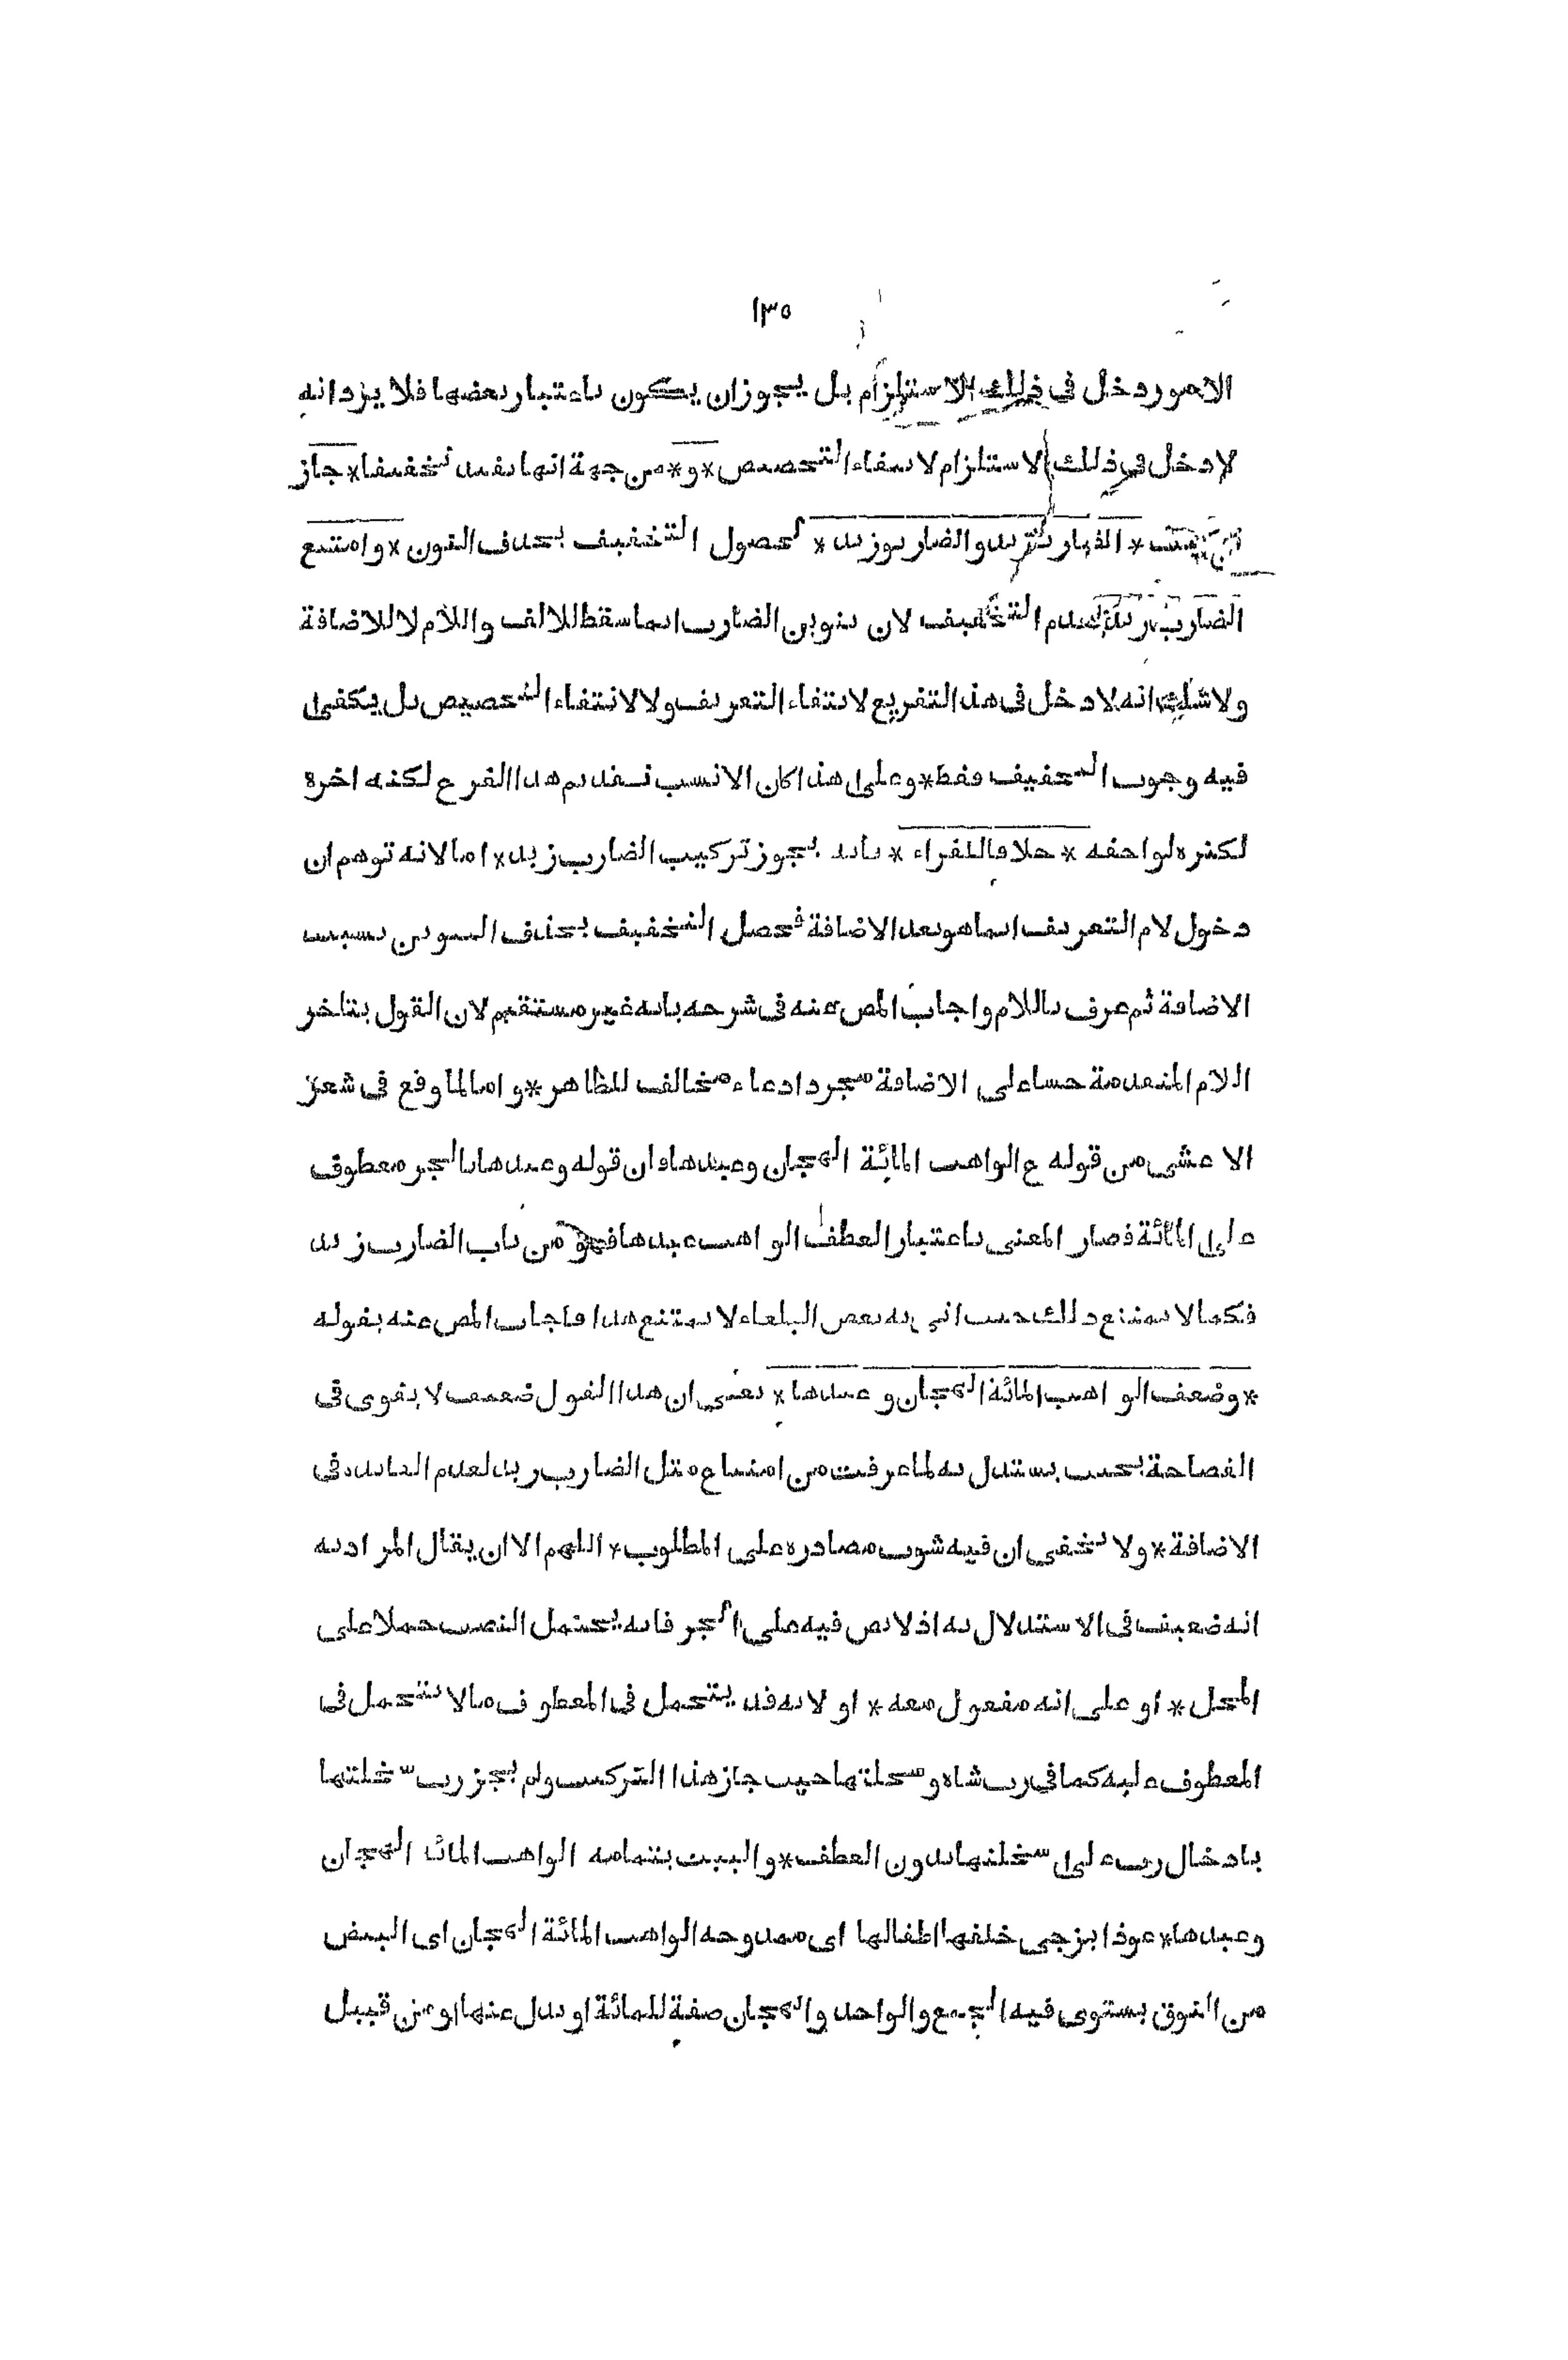 ١٣٥
الامور دخل فى ذلك الاستلزام بل يجوز ان يكون باعتبار بعضها فلا يرد انه
لا دخل فى ذلك الاستلزام لانتفاء التخصيص * و * من جهة انها تفيد تخفيفا * جاز
تركيب * الضاربا زيد والضاربو زيد * لحصول التخفيف بحذف النون * وامتنع
الضارب زيد لعدم التخفيف لان تنوين الضارب انما سقط للالف واللام لا للاضافة
ولا شك انه لا دخل فى هذا التفريع لانتفاء التعريف ولا لانتفاء التخصيص بل يكفى
فيه وجوب التخفيف فقط * وعلى هذا كان الانسب تقديم هذا الفرع لكنه اخره
لكثره لواحقه * خلافا للفراء * فانه يجوز تركيب الضارب زيد * اما لانه توهم ان
دخول لام التعريف انما هو بعد الاضافة فحصل التخفيف بحذف التنوين بسبب
الاضافة ثم عرف باللام واجاب المص عنه فى شرحه بانه غير مستقيم لان القول بتاخر
اللام المتقدمة حسا على الاضافة مجرد ادعاء مخالف للظاهر * واما لما وقع فى شعر
الاعشى من قوله ع الواهب المائة الهجان وعبدها فان قوله وعبدها بالجر معطوف
على المائة فصار المعنى باعتبار العطف الواهب عبدها فهو من باب الضارب زيد
فكما لا يمتنع ذلك حيث اتى به بعض البلغاء لا يمتنع هذا فاجاب المص عنه بقوله
* وضعف الواهب المائة الهجان وعبدها * يعنى ان هذا القول ضعيف لا يقوى فى
الفصاحة بحيث يستدل به لما عرفت من امتناع مثل الضارب زيد لعدم الفائده فى
الاضافة * ولا يخفى ان فيه شوب مصادره على المطلوب * اللهم الا ان يقال المراد به
انه ضعيف فى الاستدلال به اذ لا نص فيه على الجر فانه يحتمل النصب حملا على
المحل * او على انه مفعول معه * او لانه قد يتحمل فى المعطوف ما لا يتحمل فى
المعطوف عليه كما فى رب شاه وسخلتها حيث جاز هذا التركيب ولم يجز رب سخلتها
بادخال رب على سخلتها بدون العطف * والبيت بتمامه الواهب المائة الهجان
وعبدها * عوذا يزجى خلفها اطفالها اى ممدوحه الواهب المائة الهجان اى البيض
من النوق يستوى فيه الجمع والواحد والهجان صفة للمائة او بدل عنها او من قبيل